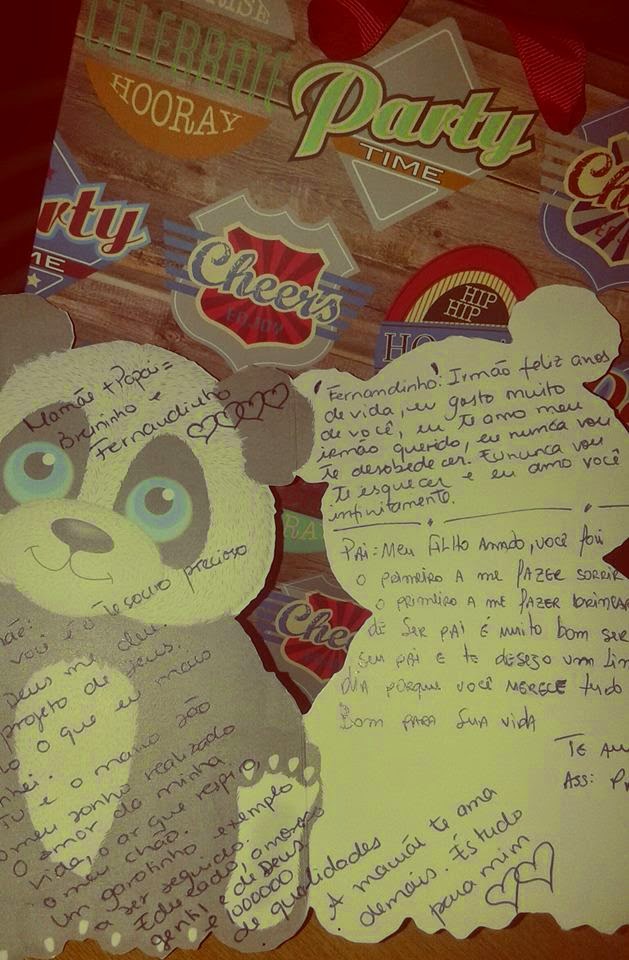 RISE
CELEBRATE
HOORAY
Party
TIME
rty
ME
Cheers
ENJOY
Ch
HIP
HIP
HO
RA
Chee
Mamãe + Papai =
Bruninho e
Fernandinho
Fernandinho: Irmão feliz anos
de vida, eu gosto muito
de você, eu te amo meu
irmão querido, eu nunca vou
te desobedecer. Eu nunca vou
te esquecer e eu amo você
infinitamente.
Pai = Meu filho amado, você foi
o primeiro a me fazer sorrir
o primeiro a me fazer brincar
de ser pai é muito bom ser
seu pai e te desejo um lin
dia porque você merece tudo
Bom para sua vida
Te am
Ass: P
mãe:
você é o tesouro precioso
Deus me deu.
projeto de Deus.
o que eu mais
nhei.
Tu é o maior são
o meu sonho realizado
O amor da minha
vida, o ar que respiro
o meu chão.
Um garotinho exemplo
a ser seguido.
Educado, amoroso
gentil e de Deus
e 1000000
de qualidades
A mamãe te ama
demais. És tudo
para mim